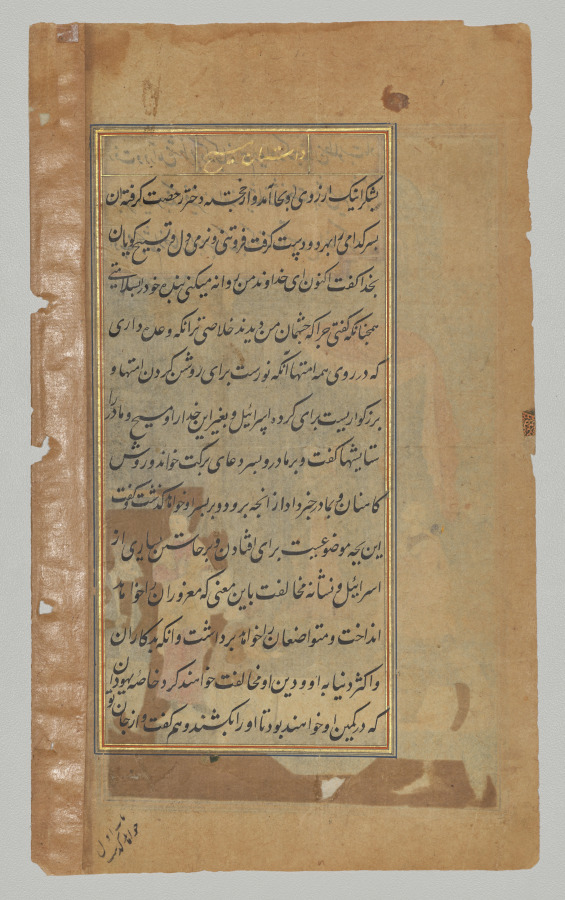 داستان مسیح
بشکرانیک ارزوی او بجا آمد و از خجسته دختر رخصت گرفته ان
پسر گدای را بهر دو دست گرفت فروتنی و نرمی دل و تسبیح گویان
بخدا گفت اکنون ای خداوند من روانه میکنی بنده خود را بسلامتی
همچنانکه گفتی چرا که چشمان من دیدند خلاصی ترا نکه وعده داری
که در روی همه امتها آنکه نورست برای روشن کردن امتها و
بزرکواریست برای کرده اسرائیل و بغیر این خدا را و مسیح و مادر را
ستایشها گفت و بر مادر و پسر دعای برکت خواند و روش
کاهنان و مادر خبر داد از انچه برو و بر پسر او خواهد گذشت و گفت
این بچه موضوعیست برای افتادن و برخاستن بسیاری از
اسرائیل و نشانه مخالفت باین معنی که مغروران را خواهد
انداخت و متواضعان را خواهد برداشت وانکه بدکاران
واکثر دنیا به او و دین او مخالفت خواهند کرد خاصه یهودان
که در کمین او خواهند بود تا او را بکشند و هم گفت و از جان تو